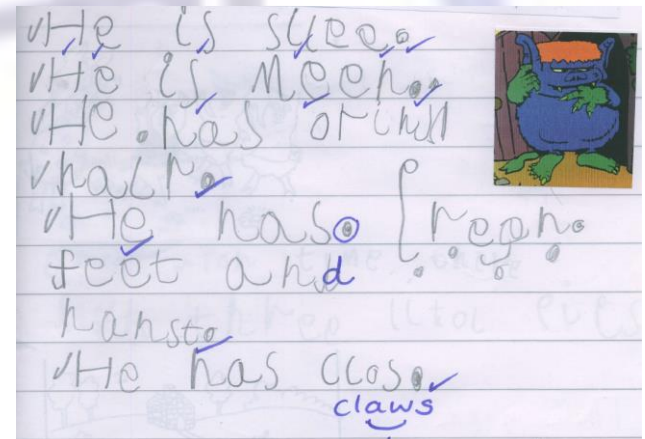 He is sllee.
He is Meen.
He . has orinj
hair.
He has greor.
feet and
hanst.
He has clos.
claws